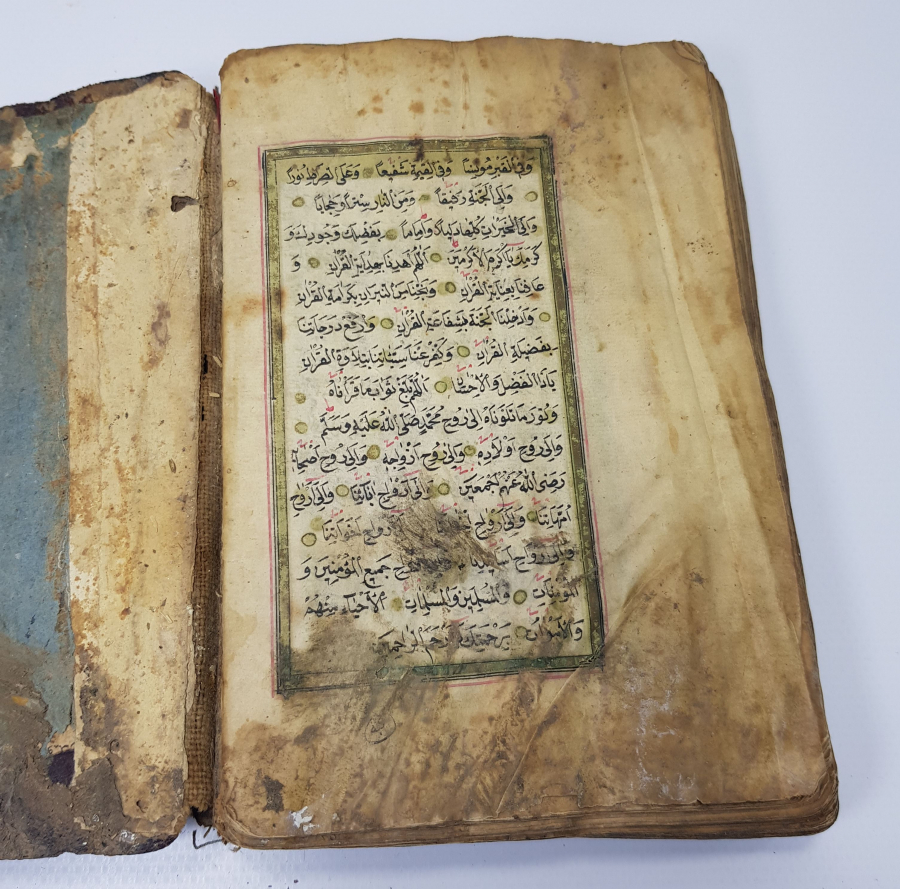 وَفِي الْقَبْرِ مُونِسًا وَفِي الْقِيٰمَةِ شَفِيعًا وَعَلَى الصِّرَاطِ نُورًا
وَاِلَى الْجَنَّةِ رَفِيقًا وَمِنَ النَّارِ سِتْرًا وَحِجَابًا
وَاِلَى الْخَيْرَاتِ كُلِّهَا دَلِيلًا وَاِمَامًا بِفَضْلِكَ وَجُودِكَ وَ
كَرَمِكَ يَا اَكْرَمَ الْاَكْرَمِينَ اَللّٰهُمَّ اهْدِنَا بِهِدَايَةِ الْقُرْاٰنِ وَ
عَافِنَا بِعِنَايَةِ الْقُرْاٰنِ وَنَجِّنَا مِنَ النِّيرَانِ بِكَرَامَةِ الْقُرْاٰنِ
وَاَدْخِلْنَا الْجَنَّةَ بِشَفَاعَةِ الْقُرْاٰنِ وَارْفَعْ دَرَجَاتِنَا
بِفَضِيلَةِ الْقُرْاٰنِ وَكَفِّرْ عَنَّا سَيِّئَاتِنَا بِتِلَاوَةِ الْقُرْاٰنِ
يَا ذَا الْفَضْلِ وَالْاِحْسَانِ اَللّٰهُمَّ بَلِّغْ ثَوَابَ مَا قَرَأْنَاهُ
وَنُورَ مَا تَلَوْنَاهُ اِلٰى رُوحِ مُحَمَّدٍ صَلَّى اللّٰهُ عَلَيْهِ وَسَلَّمَ
وَاِلٰى رُوحِ اَوْلَادِهِ وَاِلٰى رُوحِ اَزْوَاجِهِ وَاِلٰى رُوحِ اَصْحَابِهِ
رَضِيَ اللّٰهُ عَنْهُمْ اَجْمَعِينَ وَاِلٰى اَرْوَاحِ اٰبَائِنَا وَاِلٰى اَرْوَاحِ
اُمَّهَاتِنَا وَاِلٰى اَرْوَاحِ
وَاِلٰى اَرْوَاحِ جَمِيعِ الْمُؤْمِنِينَ وَ
الْمُؤْمِنَاتِ وَالْمُسْلِمِينَ وَالْمُسْلِمَاتِ اَلْاَحْيَاءِ مِنْهُمْ
وَالْاَمْوَاتِ بِرَحْمَتِكَ يَا اَرْحَمَ الرَّاحِمِينَ